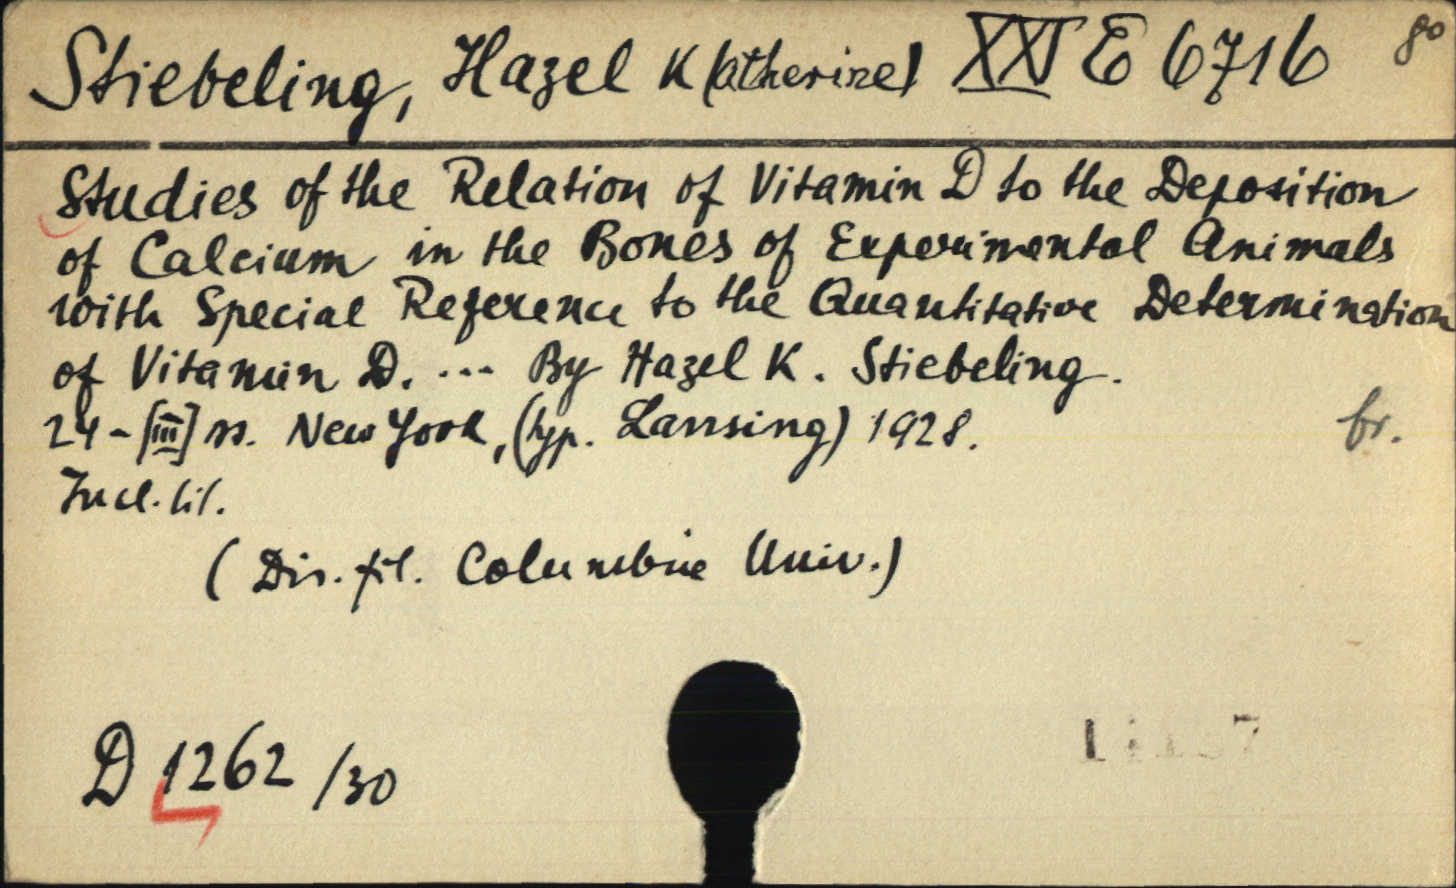 Stiebeling, Hazel K(atherine) XXI E 6716 8°
Studies of the Relation of Vitamin D to the Deposition
of Calcium in the Bones of Experimental Animals
with Special Reference to the Quantitative Determination
of Vitamin D. ... By Hazel K. Stiebeling.
24-[III] ss. New York, (typ. Lansing) 1928. br.
Incl. lit.
(Dis. fil. Columbia Univ.)
D 1262/30